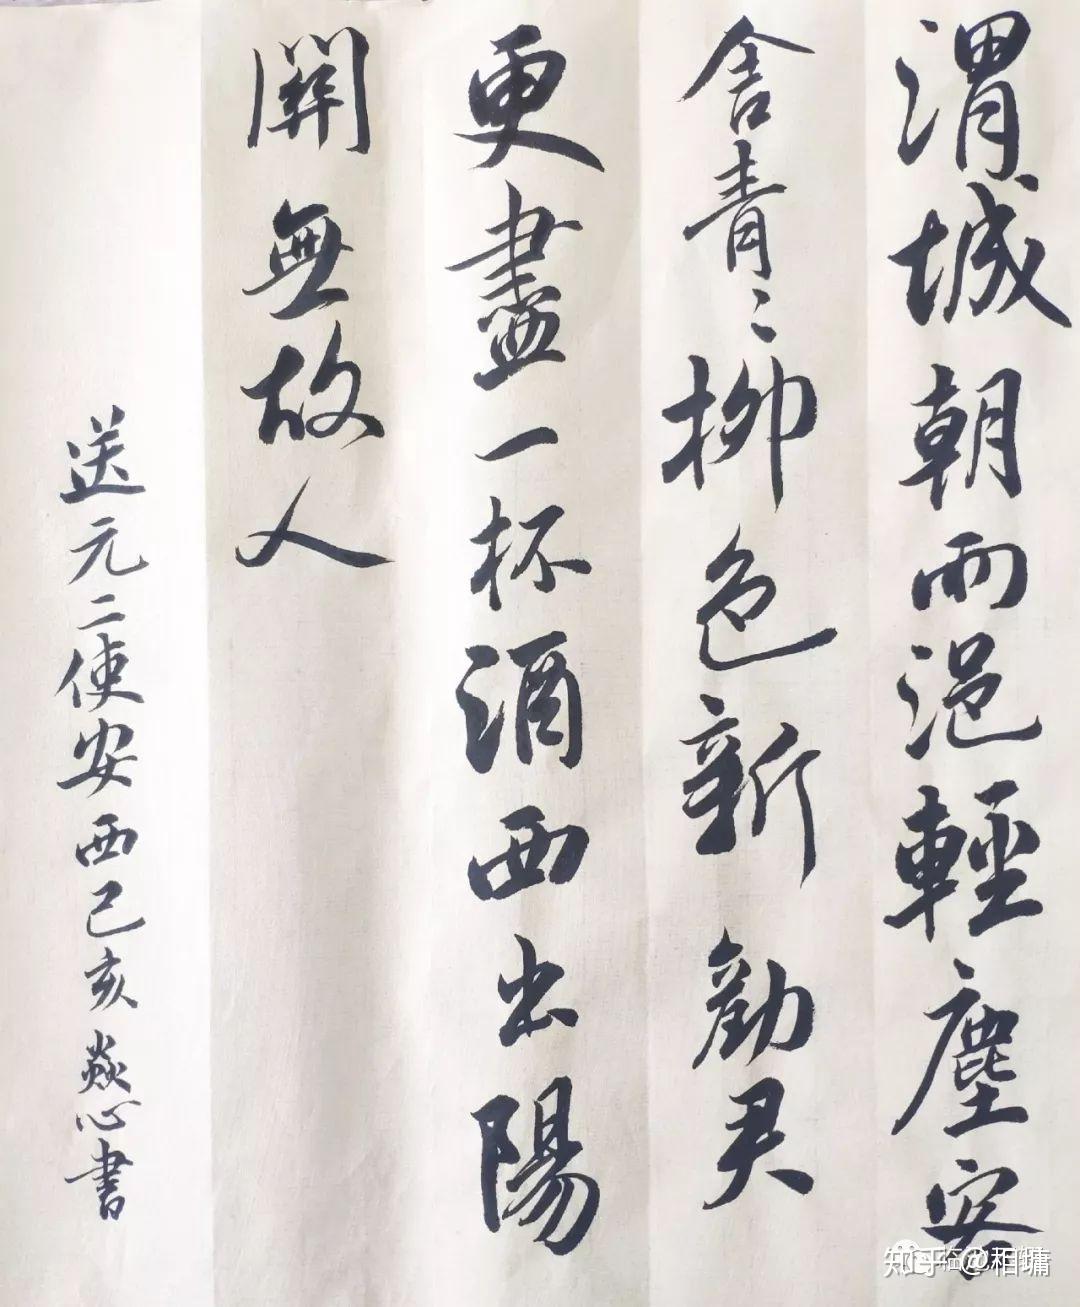 渭城朝雨浥輕塵客
舍青〻柳色新勸君
更盡一杯酒西出陽
關無故人
送元二使安西己亥焱心書
知乎 @相墉